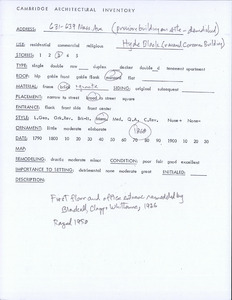 CAMBRIDGE ARCHITECTURAL INVENTORY
ADDRESS: 631-639 Mass Ave (previous building on site - demolished)
USE: residential commercial religious Hyde Block (named Corcoran Building)
STORIES: 1 2 3 4 5
TYPE: single double row duplex decker double d. tenement apartment
ROOF: hip gable front gable flank mansard flat
MATERIAL: frame brick SIDING: original subsequent
PLACEMENT: narrow to street broad to street square
ENTRANCE: flank front side front center
DETAILS: little moderate elaborate 1868
DATE: 1790 1800 10 20 30 40 50 60 70 80 90 1900 10 20 30
MAP:
REMODELING: drastic moderate minor CONDITION: poor fair good excellent
IMPORTANCE TO SETTING: detrimental none moderate great INITIALED:
DESCRIPTION:
First floor and office entrance remodeled by
Blackall, Clapp & Whittemore, 1926
Razed 1950